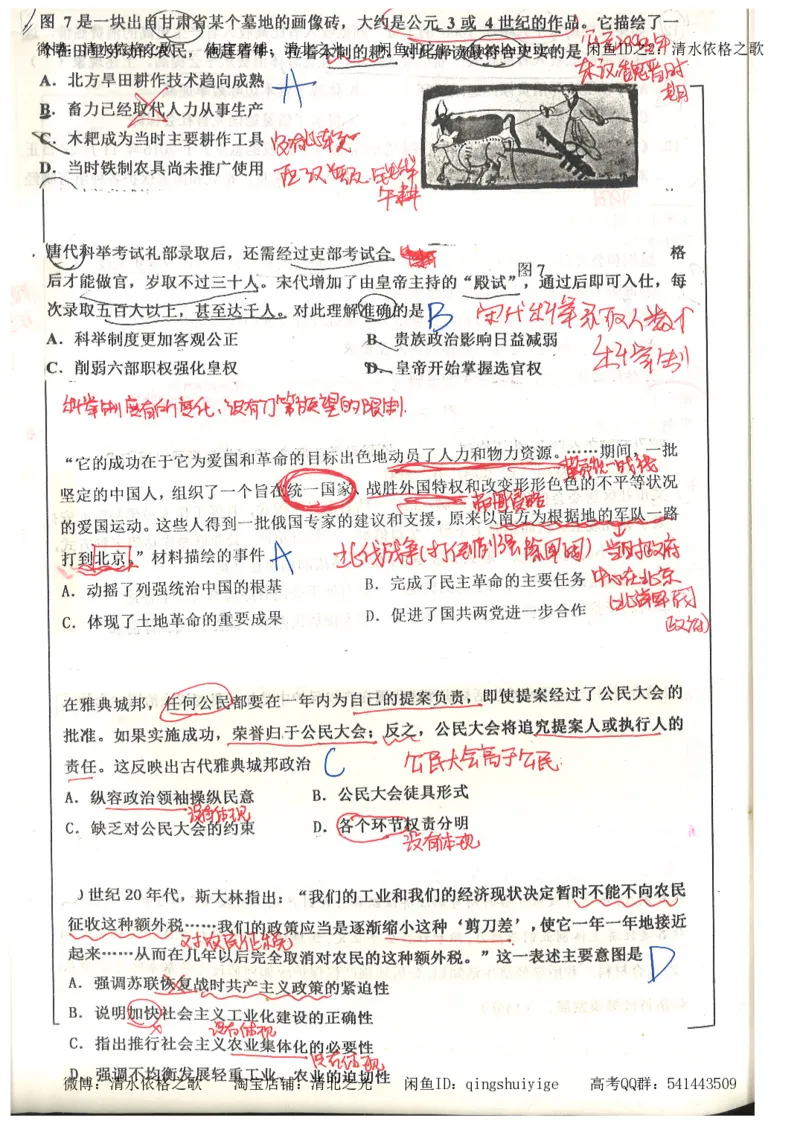 图 7 是一块出自甘肃省某个墓地的画像砖，大约是公元 3 或 4 世纪的作品。它描绘了一
微博：清水依格之歌 淘宝店铺：清北之光 闲鱼ID：qingshuiyige 闲鱼ID之27：清水依格之歌
东汉魏晋时期
A．北方旱田耕作技术趋向成熟
A
B．畜力已经取代人力从事生产
C．木耙成为当时主要耕作工具
D．当时铁制农具尚未推广使用
图 7
唐代科举考试礼部录取后，还需经过吏部考试合 格
后才能做官，岁取不过三十人。宋代增加了由皇帝主持的“殿试”，通过后即可入仕，每
次录取五百人以上，甚至达千人。对此理解准确的是 B
宋代科举录取人数个
A．科举制度更加客观公正
B．贵族政治影响日益减弱
科学制
C．削弱六部职权强化皇权
D．皇帝开始掌握选官权
科举制度有所变化，没有门第族望的限制．
“它的成功在于它为爱国和革命的目标出色地动员了人力和物力资源。……期间，一批
革命统一战线
坚定的中国人，组织了一个旨在统一国家、战胜外国特权和改变形形色色的不平等状况
帝国侵略
的爱国运动。这些人得到一批俄国专家的建议和支援，原来以南方为根据地的军队一路
打到北京。”材料描绘的事件 A
北伐战争
当时政府
中心在北京
（北洋军阀
政府）
A．动摇了列强统治中国的根基
B．完成了民主革命的主要任务
C．体现了土地革命的重要成果
D．促进了国共两党进一步合作
在雅典城邦，任何公民都要在一年内为自己的提案负责，即使提案经过了公民大会的
批准。如果实施成功，荣誉归于公民大会；反之，公民大会将追究提案人或执行人的
责任。这反映出古代雅典城邦政治 C
公民大会高于公民
A．纵容政治领袖操纵民意
没有体现
B．公民大会徒具形式
C．缺乏对公民大会的约束
D．各个环节权责分明
没有体现
世纪 20 年代，斯大林指出：“我们的工业和我们的经济现状决定暂时不能不向农民
征收这种额外税……我们的政策应当是逐渐缩小这种‘剪刀差’，使它一年一年地接近
对农民征税
起来……从而在几年以后完全取消对农民的这种额外税。”这一表述主要意图是 D
A．强调苏联恢复战时共产主义政策的紧迫性
B．说明加快社会主义工业化建设的正确性
没有体现
C．指出推行社会主义农业集体化的必要性
没有体现
D．强调不均衡发展轻重工业、农业的迫切性
微博：清水依格之歌 淘宝店铺：清北之光 闲鱼ID：qingshuiyige 高考QQ群：541443509